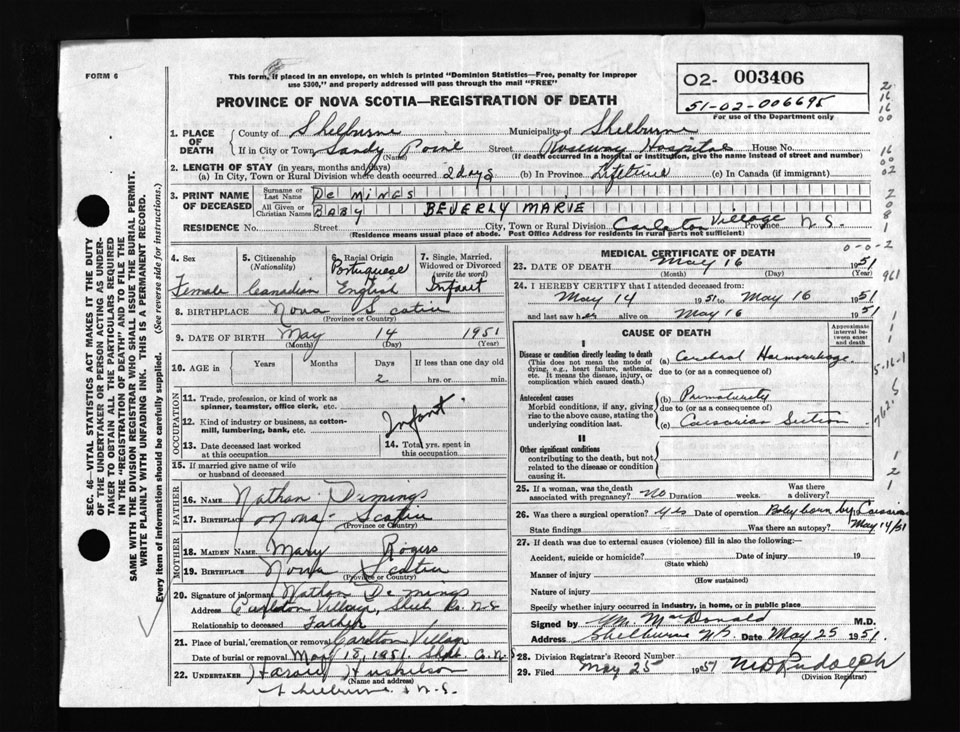 FORM 6
This form, if placed in an envelope, on which is printed "Dominion Statistics—Free, penalty for improper
use $300," and properly addressed will pass through the mail "FREE"
PROVINCE OF NOVA SCOTIA—REGISTRATION OF DEATH
O2- 003406
51-02-006695
For use of the Department only
1. PLACE OF DEATH
County of Shelburne Municipality of Shelburne
If in City or Town Sandy Point (Name) Street Roseway Hospital House No.
(If death occurred in a hospital or institution, give the name instead of street and number)
2. LENGTH OF STAY (in years, months and days)
(a) In City, Town or Rural Division where death occurred 2 days (b) In Province Lifetime (c) In Canada (if immigrant)
3. PRINT NAME OF DECEASED
Surname or Last Name De Mings
All Given or Christian Names Baby BEVERLY MARIE
RESIDENCE No. Street City, Town or Rural Division Carleton Village Province N.S.
(Residence means usual place of abode. Post Office Address for residents in rural parts not sufficient)
4. Sex Female
5. Citizenship (Nationality) Canadian
6. Racial Origin Portuguese English
7. Single, Married, Widowed or Divorced (write the word) Infant
8. BIRTHPLACE Nova Scotia
(Province or Country)
9. DATE OF BIRTH May 14 1951
(Month) (Day) (Year)
10. AGE in Years Months Days 2 If less than one day old hrs. or min.
OCCUPATION
11. Trade, profession, or kind of work as spinner, teamster, office clerk, etc.
12. Kind of industry or business, as cotton-mill, lumbering, bank, etc. Infant
13. Date deceased last worked at this occupation
14. Total yrs. spent in this occupation
15. If married give name of wife or husband of deceased
FATHER
16. Name Nathan Demings
17. Birthplace Nova Scotia
(Province or Country)
MOTHER
18. MAIDEN NAME Mary Rogers
19. BIRTHPLACE Nova Scotia
(Province or Country)
20. Signature of informant Nathan Demings
Address Carleton Village, Shelb Co. N.S
Relationship to deceased Father
21. Place of burial, cremation or removal Carleton Village
Date of burial or removal May 18, 1951. Shel. Co. N.S
22. UNDERTAKER Huskilson
(Name and address)
Shelburne, N.S.
MEDICAL CERTIFICATE OF DEATH
23. DATE OF DEATH May 16 1951
(Month) (Day) (Year)
24. I HEREBY CERTIFY that I attended deceased from:
May 14 1951 to May 16 1951
and last saw her alive on May 16 1951
CAUSE OF DEATH
Approximate interval between onset and death
I
Disease or condition directly leading to death
(This does not mean the mode of dying, e.g., heart failure, asthenia, etc. It means the disease, injury, or complication which caused death.)
(a) Cerebral Haemorrhage
due to (or as a consequence of)
Antecedent causes
Morbid conditions, if any, giving rise to the above cause, stating the underlying condition last.
(b) Prematurity
due to (or as a consequence of)
(c) Caesarian Section
II
Other significant conditions
contributing to the death, but not related to the disease or condition causing it.
25. If a woman, was the death associated with pregnancy? No Duration weeks. Was there a delivery?
26. Was there a surgical operation? Yes Date of operation Baby born by Caesarian May 14/51
State findings Was there an autopsy?
27. If death was due to external causes (violence) fill in also the following:—
Accident, suicide or homicide? Date of injury 19
(State which)
Manner of injury
(How sustained)
Nature of injury
Specify whether injury occurred in industry, in home, or in public place
Signed by MacDonald M.D.
Address Shelburne N.S. Date May 25 1951.
28. Division Registrar's Record Number
29. Filed May 25 1951 M D Rudolph
(Division Registrar)
SEC. 46—VITAL STATISTICS ACT MAKES IT THE DUTY
OF THE UNDERTAKER OR PERSON ACTING AS UNDER-
TAKER TO OBTAIN ALL THE PARTICULARS REQUIRED
IN THE "REGISTRATION OF DEATH" AND TO FILE THE
SAME WITH THE DIVISION REGISTRAR WHO SHALL ISSUE THE BURIAL PERMIT.
WRITE PLAINLY WITH UNFADING INK. THIS IS A PERMANENT RECORD.
Every item of information should be carefully supplied. (See reverse side for instructions.)
2
16
16
00
16
00
02
2
0
8
1
0-0-2
961
1
1
1
5-16-1
762.5
1
2
1